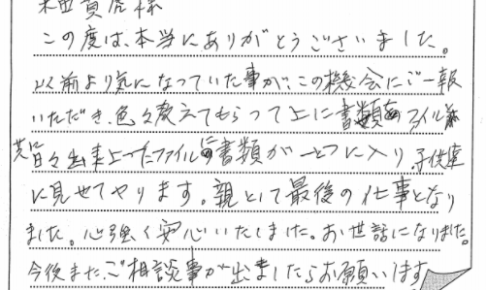 様
この度は、本当にありがとうございました。
以前より気になっていた事が、この機会にご一報
いただき、色々教えてもらって上に書類のファイル
出来上ったファイルに書類が一つに入り、子供達
に見せてやります。親として最後の仕事となり
ました。心強く安心いたしました。お世話になりました。
今後また、ご相談事が出ましたらお願いします